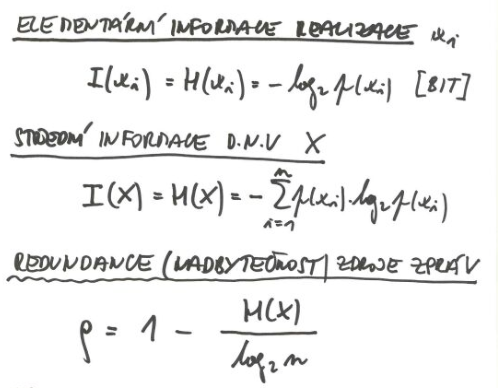 ELEMENTÁRNÍ INFORMACE REALIZACE xᵢ
I(xᵢ) = H(xᵢ) = - log₂ p(xᵢ) [BIT]
STŘEDNÍ INFORMACE D.N.V X
I(X) = H(X) = - ∑ⁿᵢ₌₁ p(xᵢ)·log₂ p(xᵢ)
REDUNDANCE (NADBYTEČNOST) ZDROJE ZPRÁV
ρ = 1 - H(X) / log₂ n